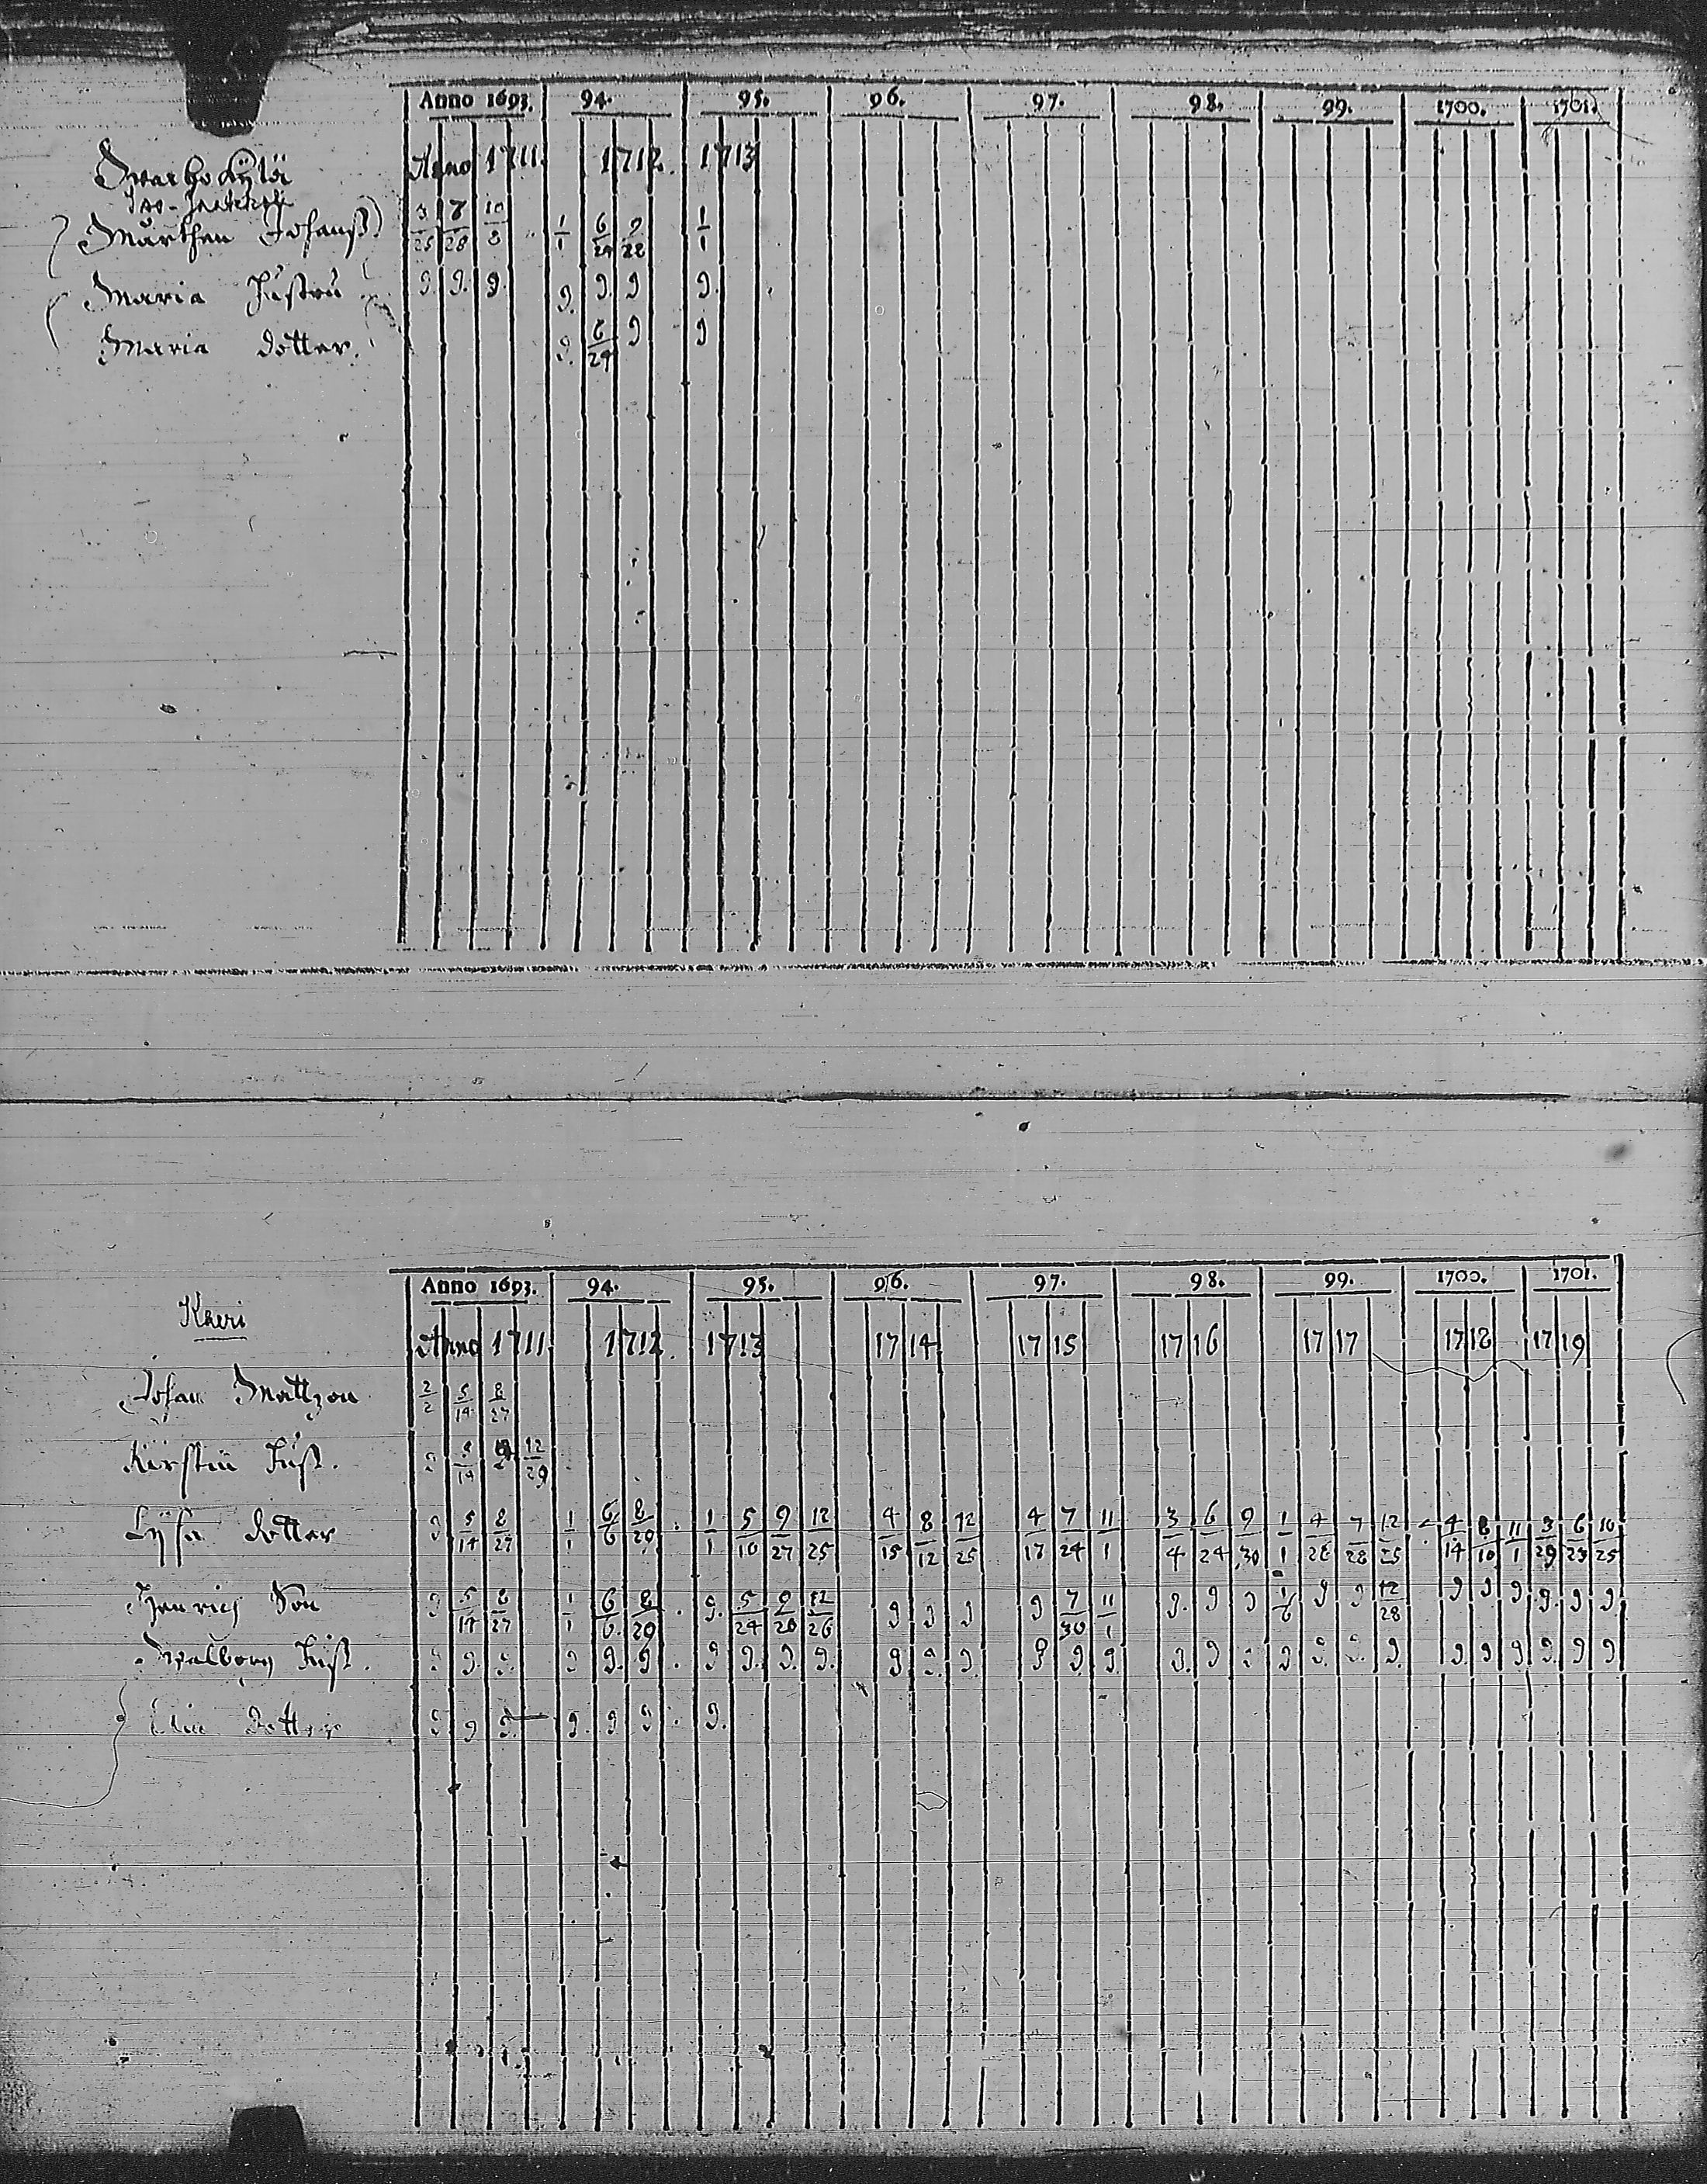 Anno 1693. 94. 95. 96. 97. 98. 99. 1700. 1701.
Anno 1711. 1712. 1713
Mårthen Johanß 3/25 7/28 10/8 1/1 6/24 9/22 1/1
Maria Hustru 9. 9. 9. 9. 9. 9 9.
Maria dotter. 9. 6/24 9 9
Anno 1693. 94. 95. 96. 97. 98. 99. 1700. 1701.
Kheri
Anno 1711. 1712. 1713 1714 1715 1716 1717 1718 1719
Johan Mattzon 2/2 5/14 8/27
Kirstin Huß. 9 5/14 12/29
Lÿsa dotter 9 5/14 8/27 1/1 6/6 8/29 1/1 5/10 9/27 12/25 4/15 8/12 12/25 4/17 7/24 11/1 3/4 6/24 9/30 1/1 4/28 7/28 12/25 4/14 8/10 11/1 3/29 6/23 10/25
Henrich Son 9 5/14 8/27 1/1 6/6 8/29 9. 5/24 9/28 12/26 9 9 9 9 7/30 11/1 9. 9 9 1/6 9 9 12/28 9 9 9 9. 9 9
Walborg Huß. 9 9. 9. 9 9. 9. 9 9. 9. 9. 9 9. 9. 9 9. 9. 9. 9 9 9 9. 9. 9. 9. 9 9 9. 9 9
Elin dotter 9 9 9. 9. 9 9 9.